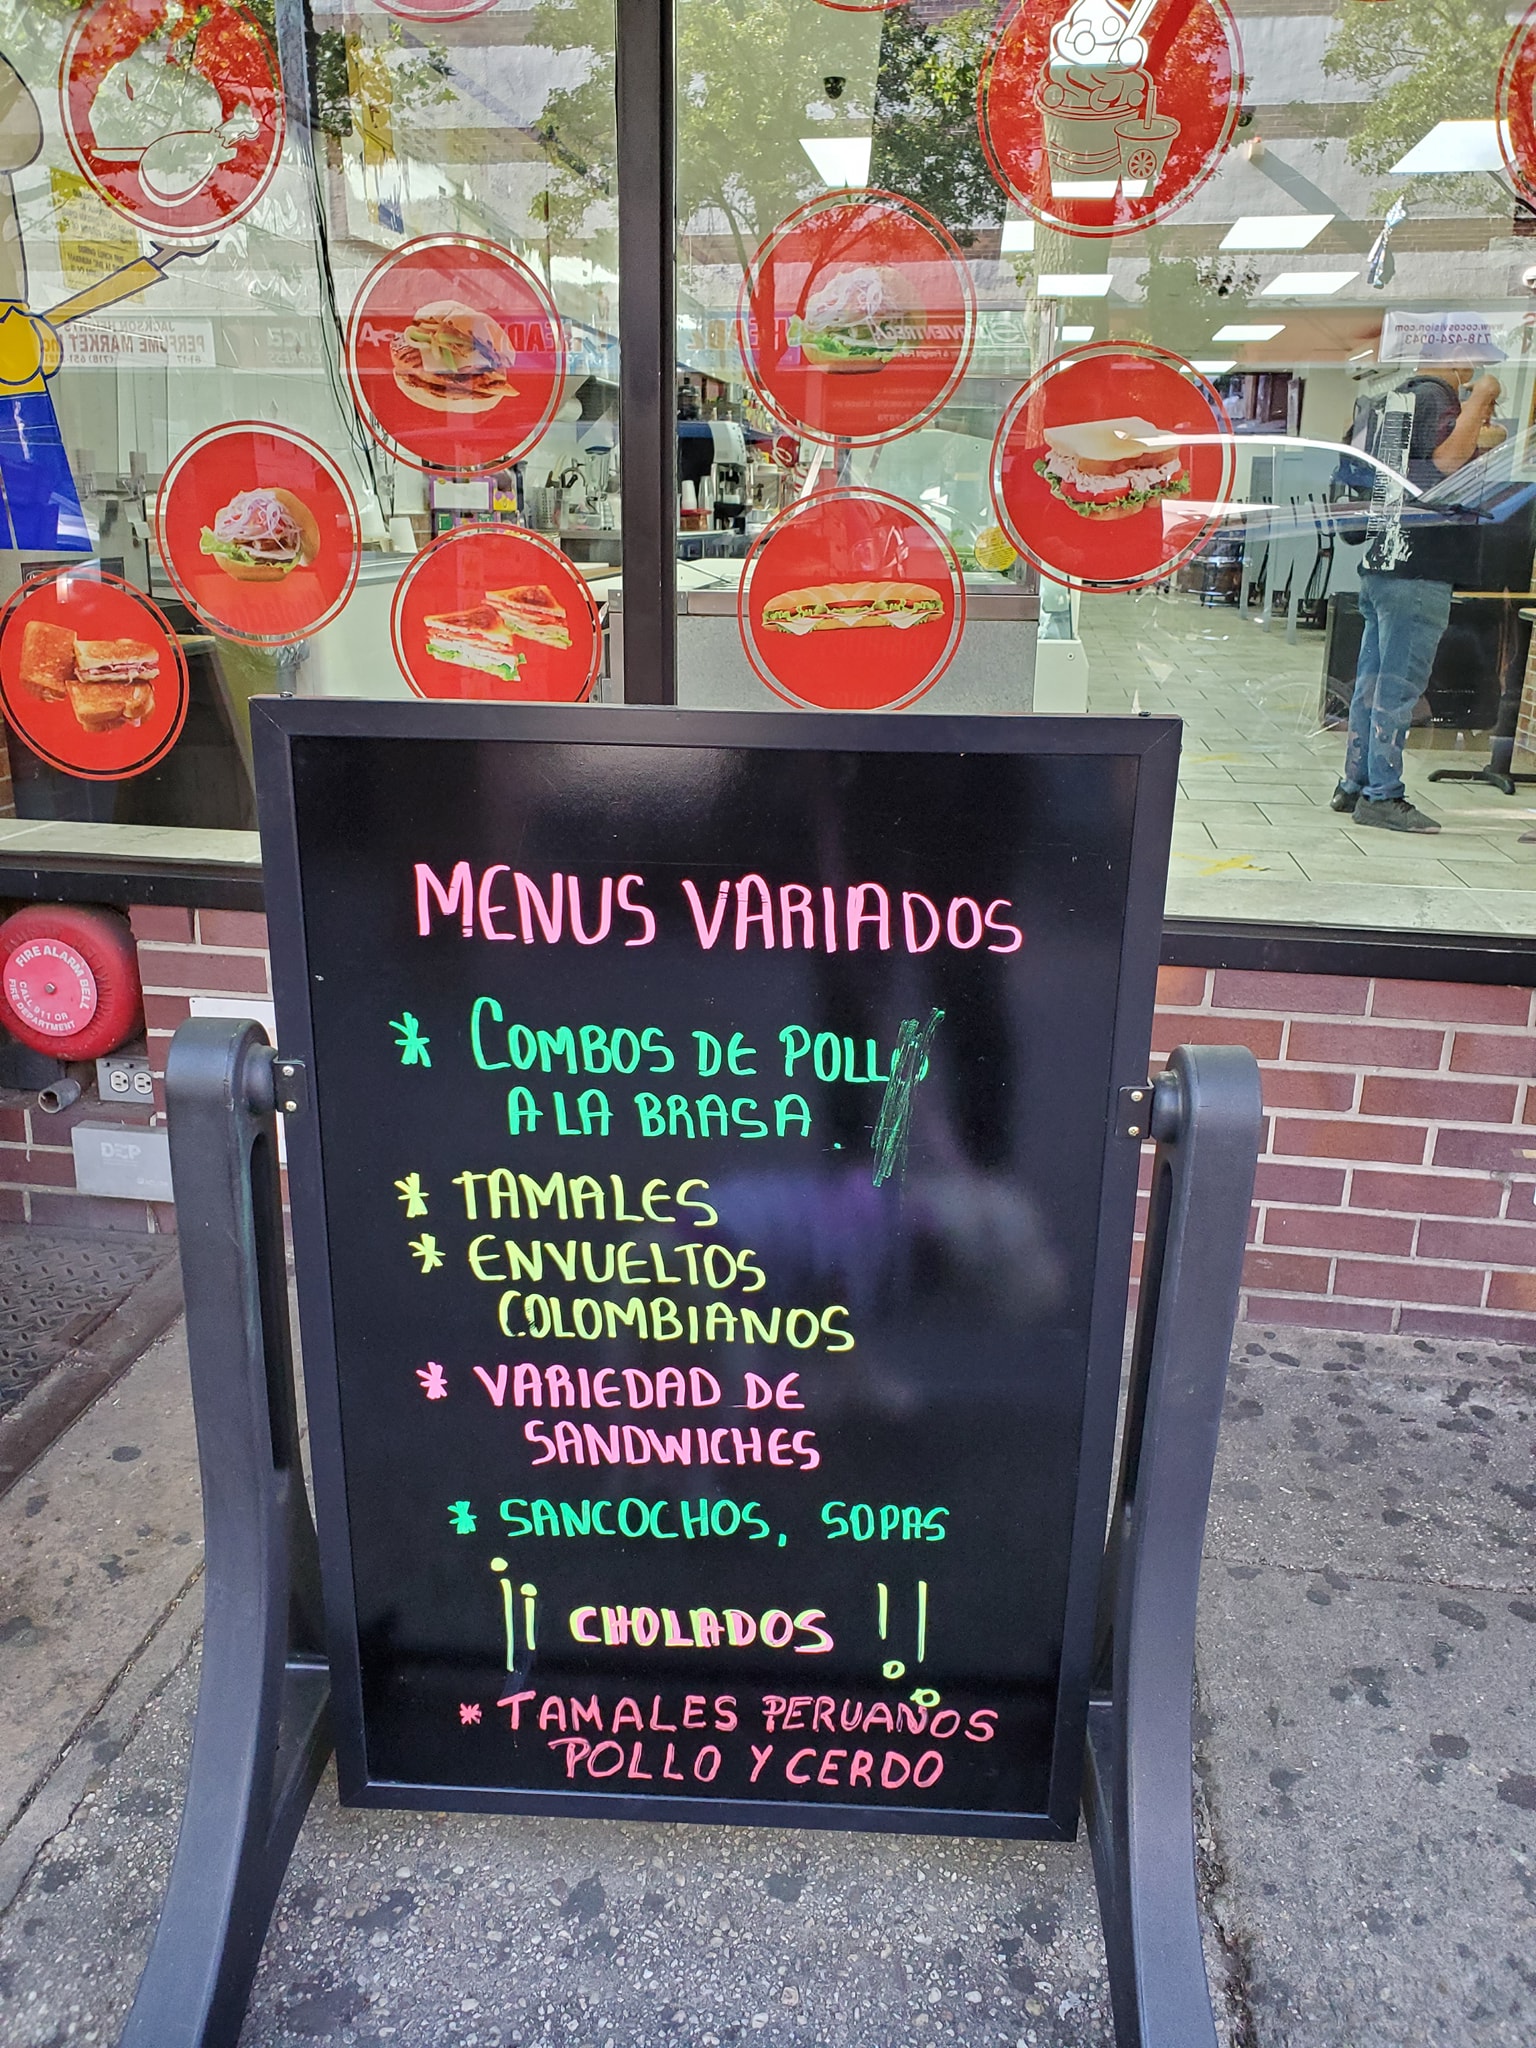 JACKSON HEIGHTS
PERFUME MARKET Inc
www.cocosvision.com
718-424-0043
MENUS VARIADOS
* COMBOS DE POLLO
A LA BRASA.
* TAMALES
* ENVUELTOS
COLOMBIANOS
* VARIEDAD DE
SANDWICHES
* SANCOCHOS, SOPAS
¡¡ CHOLADOS !!
* TAMALES PERUANOS
POLLO Y CERDO
FIRE ALARM BELL
CALL 911 OR
FIRE DEPARTMENT
DEP